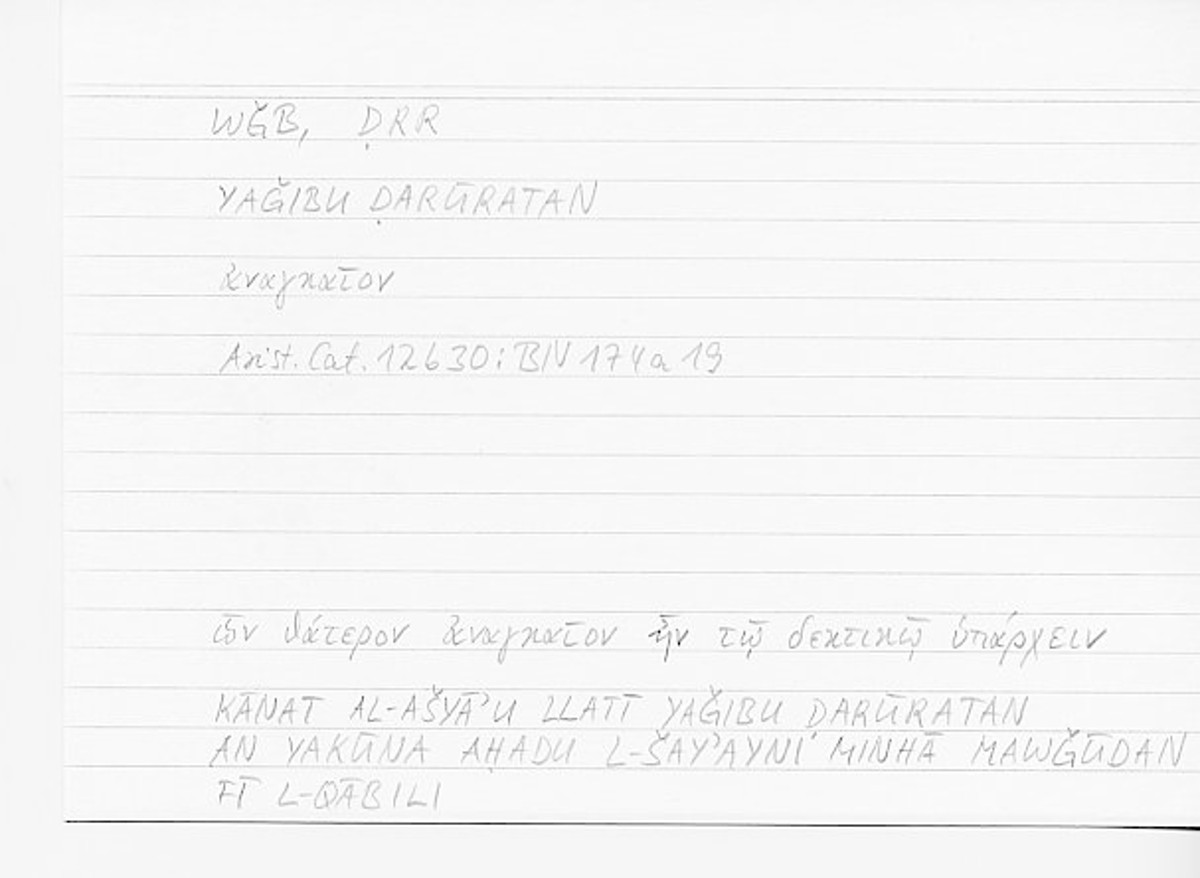 WǦB, ḌRR
YAǦIBU ḌARŪRATAN
ἀναγκαῖον
Arist. Cat. 12b30; BN 174a19
ὧν θάτερον ἀναγκαῖον ἦν τῷ δεκτικῷ ὑπάρχειν
KĀNAT AL-AŠYĀʾU LLATĪ YAǦIBU DARŪRATAN
AN YAKŪNA AḤADU L-ŠAYʾAYNI MINHĀ MAWǦŪDAN
FĪ L-QĀBILI